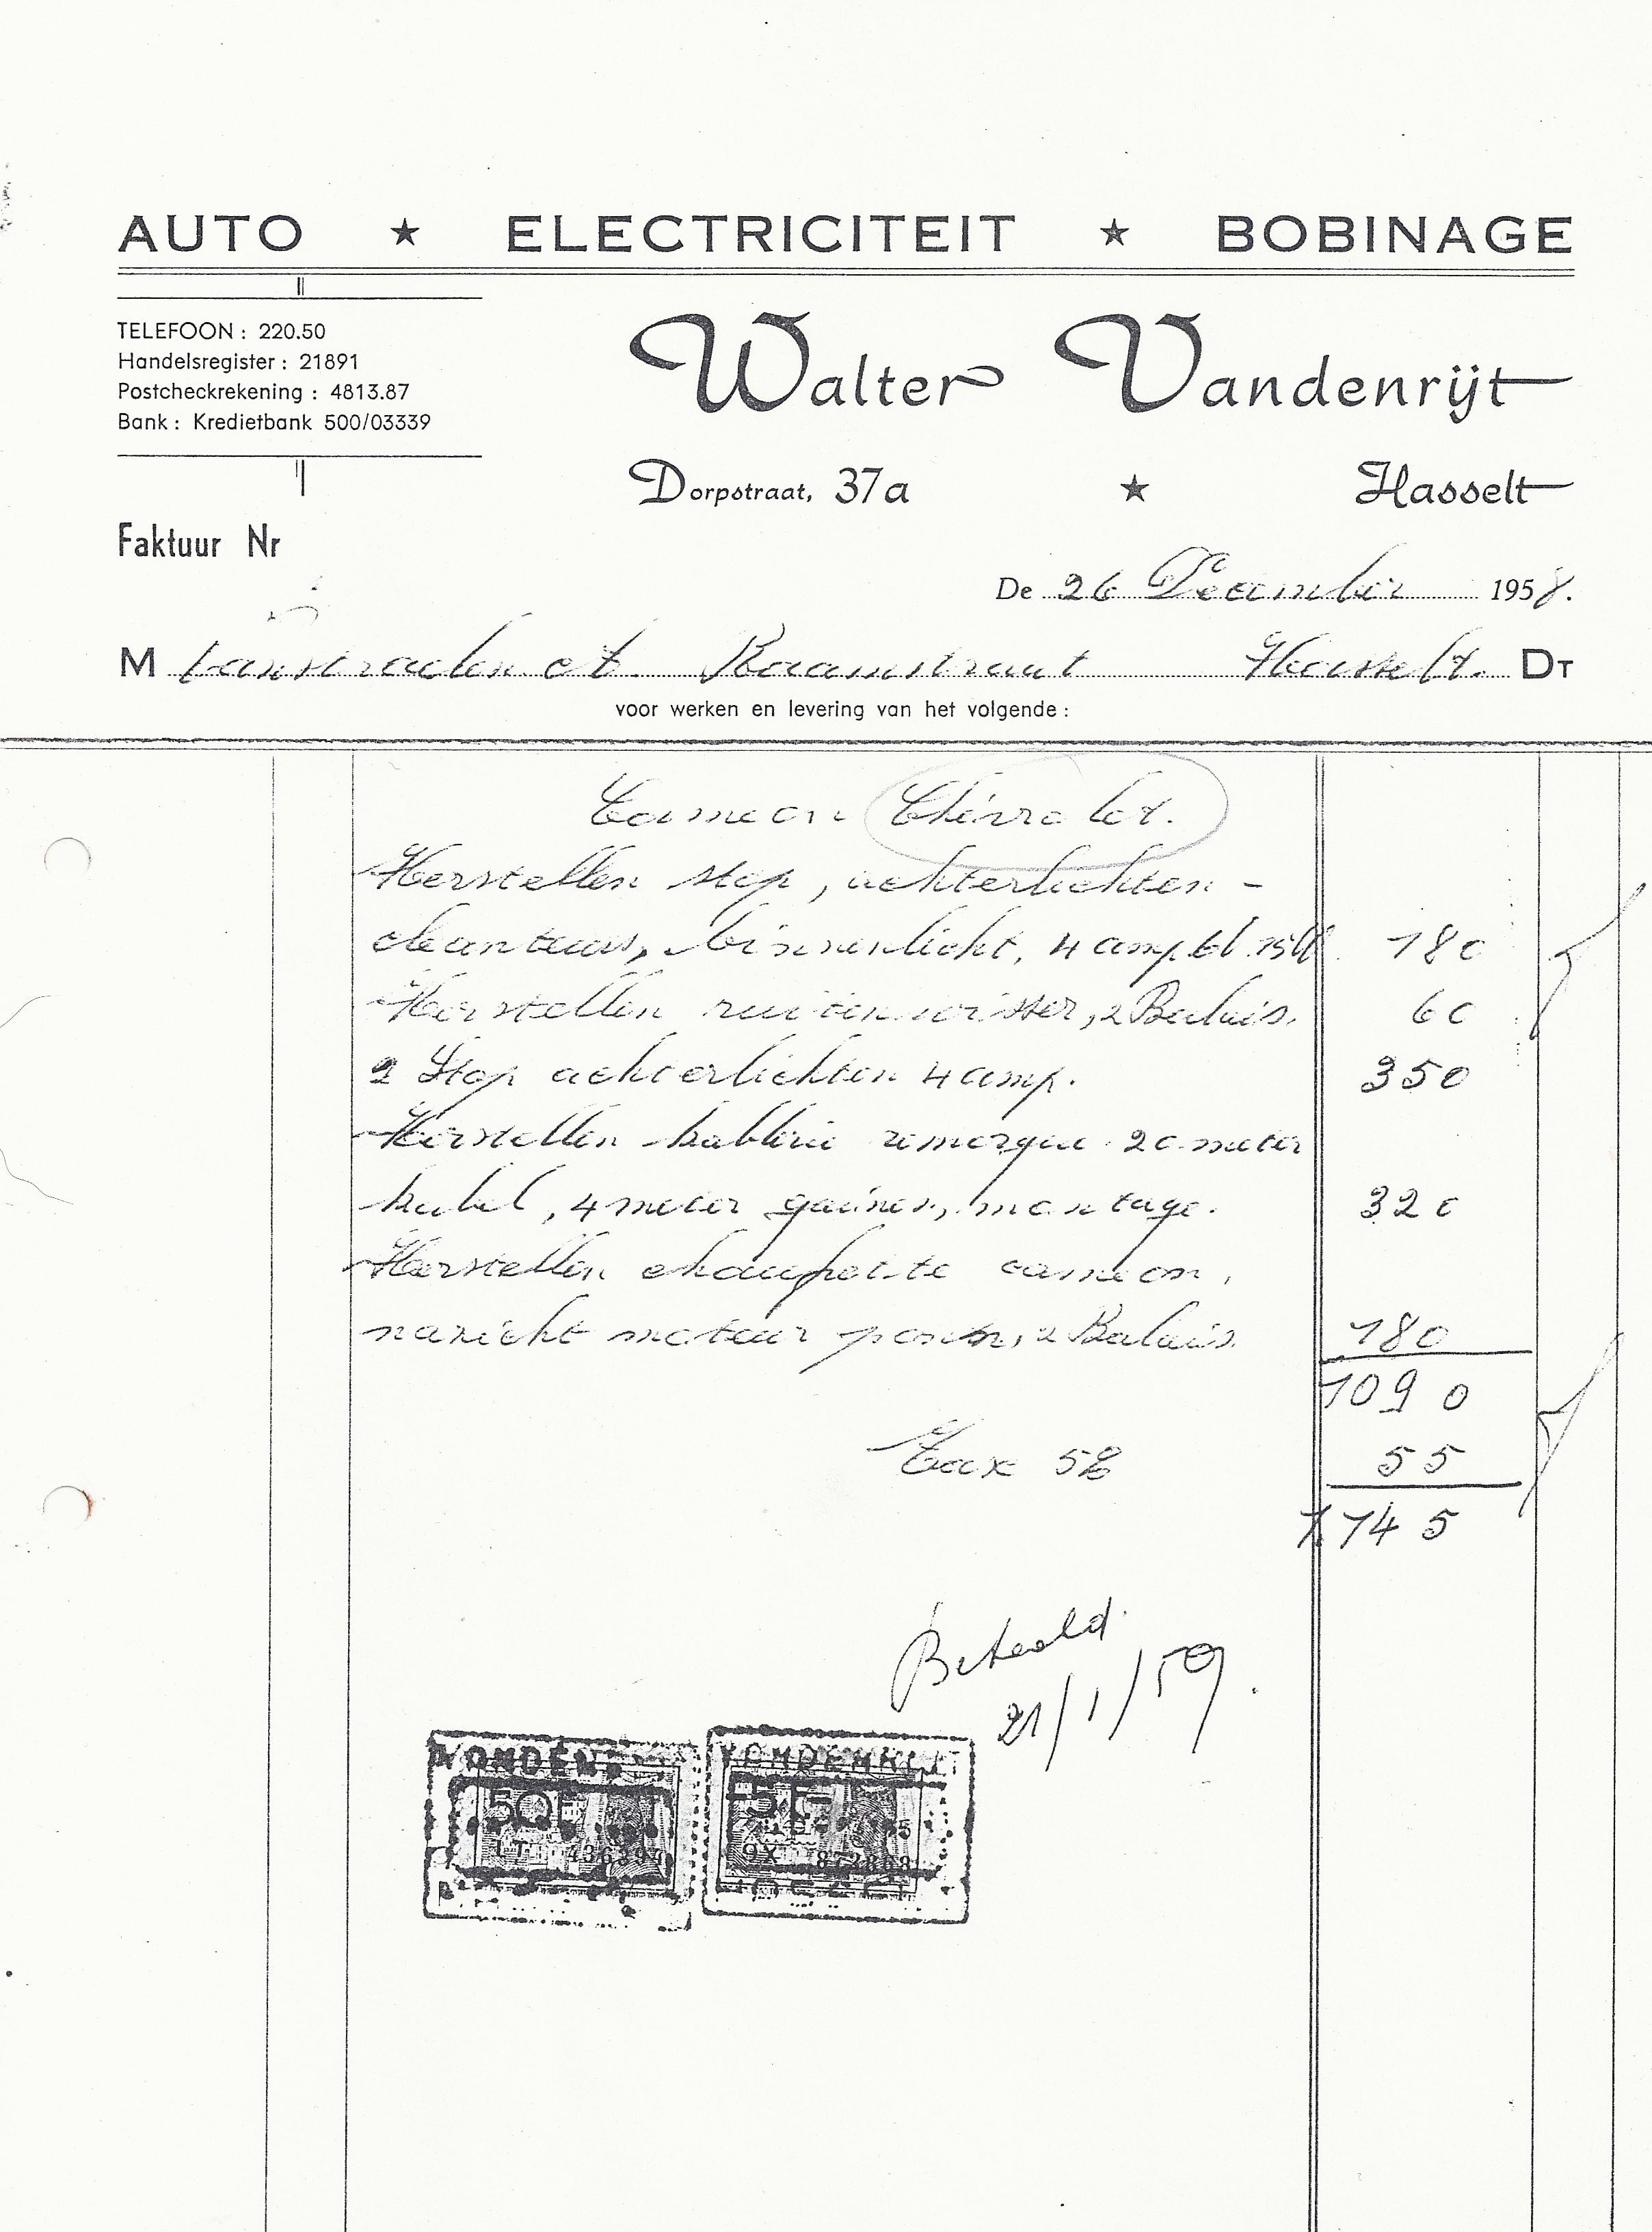 AUTO ★ ELECTRICITEIT ★ BOBINAGE
TELEFOON : 220.50
Handelsregister : 21891
Postcheckrekening : 4813.87
Bank : Kredietbank 500/03339
Walter Vandenrijt
Dorpstraat, 37a ★ Hasselt
Faktuur Nr
De 26 December 1958.
M Vanstraelen et. Raamstraat Hasselt. DT
voor werken en levering van het volgende :
Cameon Chevrolet.
Herstellen stop, achterlichten -
cleanteurs, binnenlicht, 4 amp. 180
Herstellen ruitenwisser, 2 Balais. 60
2 Stop achterlichten 4 amp. 350
Herstellen kablerie remorque 20 meter
kabel, 4 meter gainen, montage. 320
Herstellen cameon,
nazicht moteur 2 Balais. 180
1090
Tax 5% 55
1145
Betaald.
21/1/59.
VANDENRIJT
50F 5F
436394 9X 872868